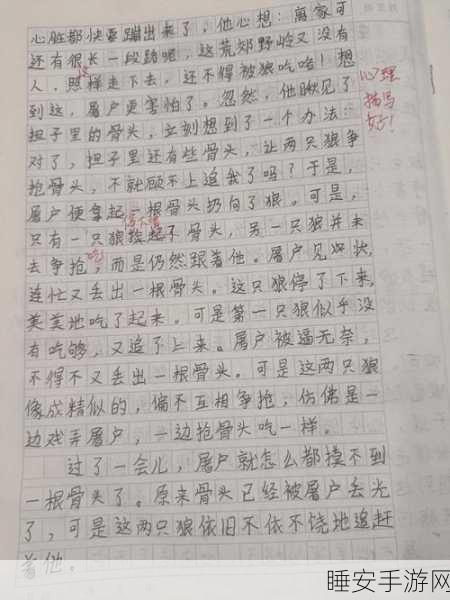 心脏都快要蹦出来了，他心想：离家可
还有很长一段路呢，这荒郊野岭又没有
人，照样走下去，还不得被狼吃啥！想
到这，屠户更害怕了。忽然，他瞅见了
担子里的骨头，立刻想到了一个办法：
对了，担子里还有些骨头，让两只狼争
抢骨头，不就顾不上追我了吗？于是，
屠户便拿起一根骨头扔向了狼。可是，
只有一只狼捡起了骨头，另一只狼并未
去争抢，而是仍然跟着他。屠户见状，
连忙又丢出一根骨头。这只狼停了下来，
美美地吃了起来。可是第一只狼似乎没
有吃够，又追了上来。屠户被逼无奈，
不得不又丢出一根骨头。可是这两只狼
像成精似的，偏不互相争抢，仿佛是一
边戏弄屠户，一边抢骨头吃一样。
过了一会儿，屠户就怎么都摸不到
一根骨头了。原来骨头已经被屠户丢光
了，可是这两只狼依旧不依不饶地追赶
着他。
心理
描写
好！
睡安手游网